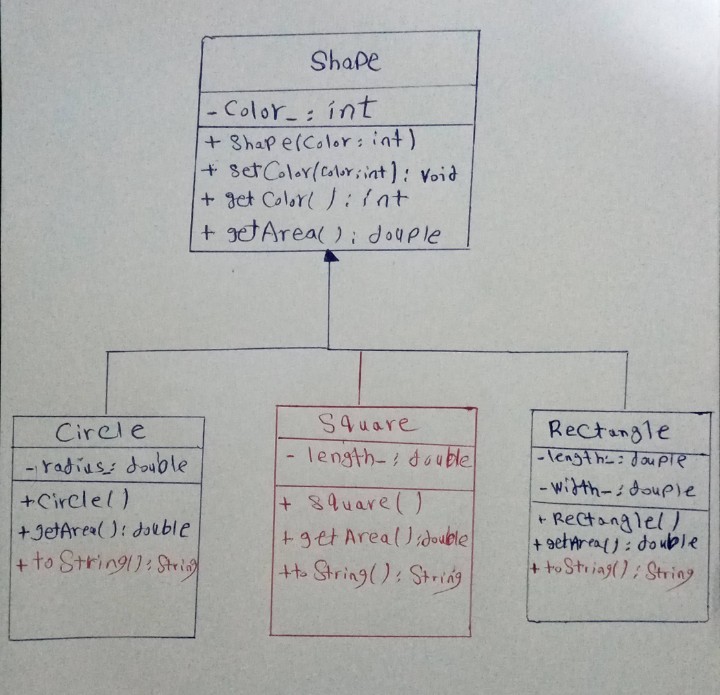 Shape
- Color_: int
+ Shape(Color: int)
+ setColor(color:int): void
+ get Color( ): int
+ getArea(): douple
Circle
- radius_: double
+Circle()
+getArea(): double
+to String(): String
Square
- length_: double
+ Square()
+ get Area():double
+to String(): String
Rectangle
-length_: douple
-width_: douple
+ Rectangle()
+getArea(): double
+toString(): String